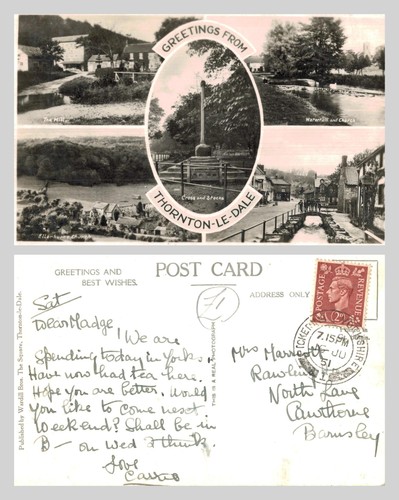 GREETINGS FROM
The Mill
Waterfall and Church
Cross and Stocks
THORNTON-LE-DALE
GREETINGS AND
BEST WISHES.
POST CARD
ADDRESS ONLY
POSTAGE
REVENUE
THIS IS A REAL PHOTOGRAPH
Published by Wardill Bros. The Square, Thornton-le-Dale.
7.15 PM
JU
51
Sat
Dear Madge,
We are
Spending today in Yorks.
Have just had tea here.
Hope you are better. Would
you like to come next
weekend? Shall be in
B— on Wed I think.
Love
Mrs Marriott
North Lane
Cawthorne
Barnsley